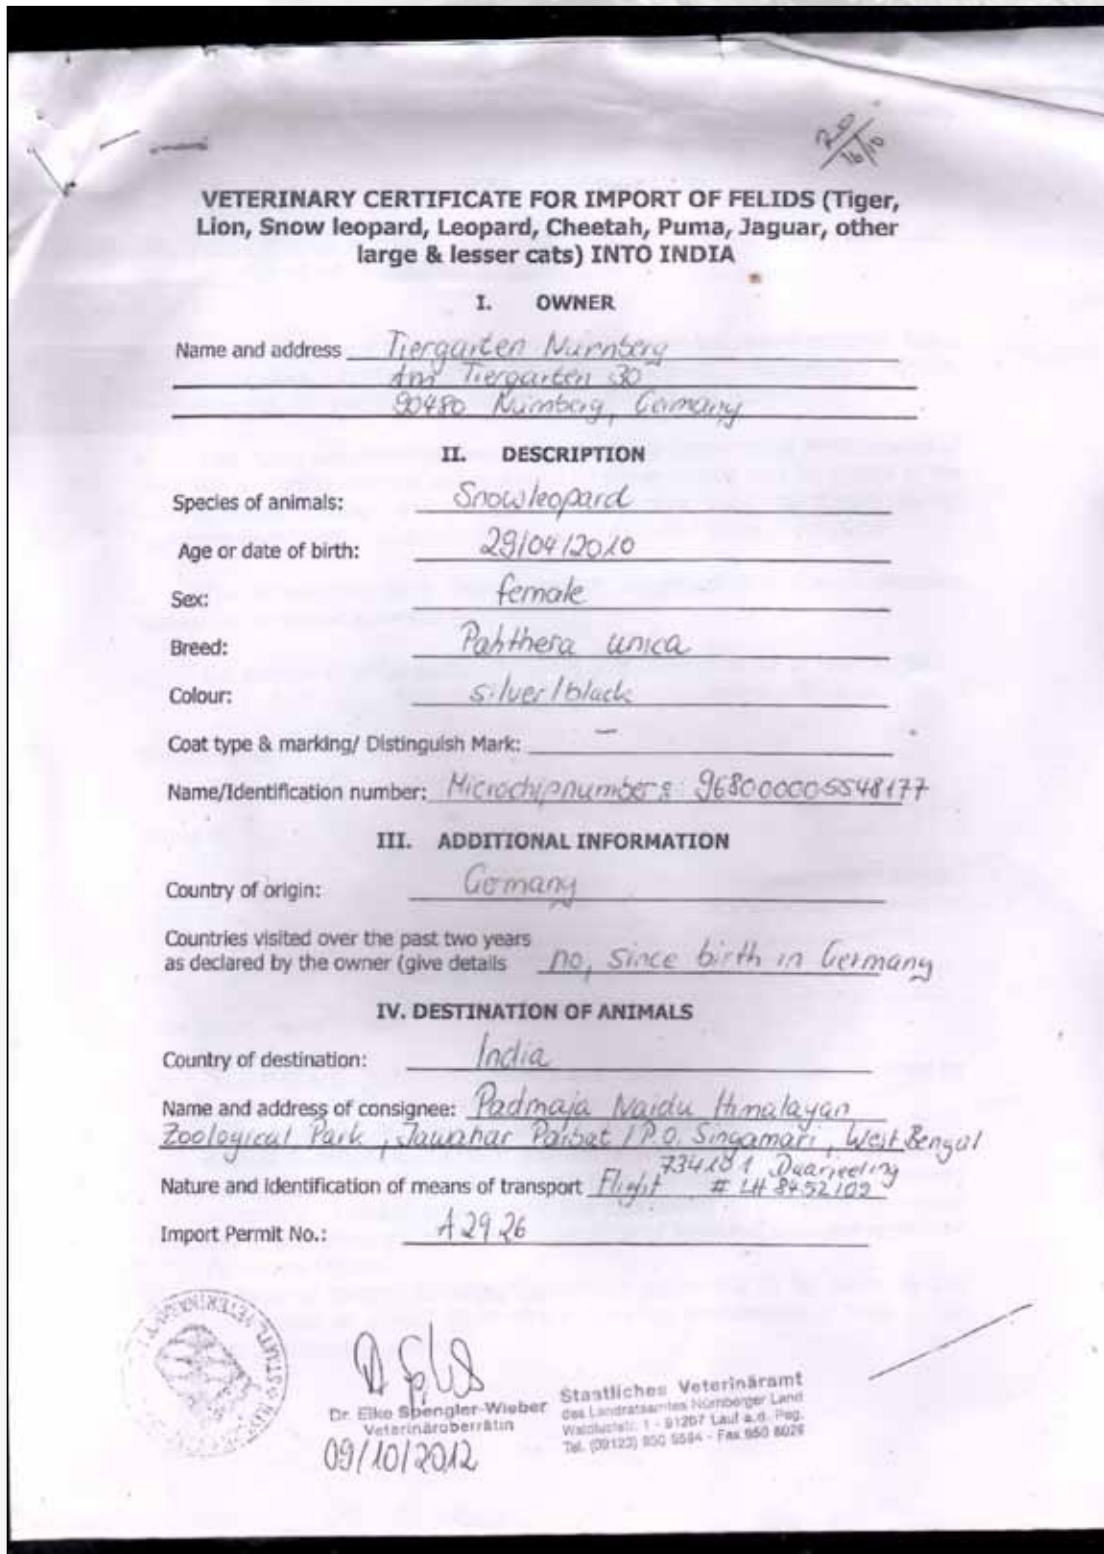 20
16/10
VETERINARY CERTIFICATE FOR IMPORT OF FELIDS (Tiger,
Lion, Snow leopard, Leopard, Cheetah, Puma, Jaguar, other
large & lesser cats) INTO INDIA
I. OWNER
Name and address Tiergarten Nürnberg
Am Tiergarten 30
90480 Nürnberg, Germany
II. DESCRIPTION
Species of animals: Snowleopard
Age or date of birth: 29/04/2010
Sex: female
Breed: Panthera unica
Colour: silver/black
Coat type & marking/ Distinguish Mark: –
Name/Identification number: Microchipnumber: 968000005548177
III. ADDITIONAL INFORMATION
Country of origin: Germany
Countries visited over the past two years
as declared by the owner (give details no, since birth in Germany
IV. DESTINATION OF ANIMALS
Country of destination: India
Name and address of consignee: Padmaja Naidu Himalayan
Zoological Park, Jawahar Parbat / P.O. Singamari, West Bengal
734101 Daarjeeling
Nature and identification of means of transport Flight # LH 8452/09
Import Permit No.: A 29 26
Dr. Elke Spengler-Wieber
Veterinäroberrätin
09/10/2012
Staatliches Veterinäramt
des Landratsamtes Nürnberger Land
Waldluststr. 1 - 91207 Lauf a.d. Peg.
Tel. (09123) 950 - Fax 950 8026